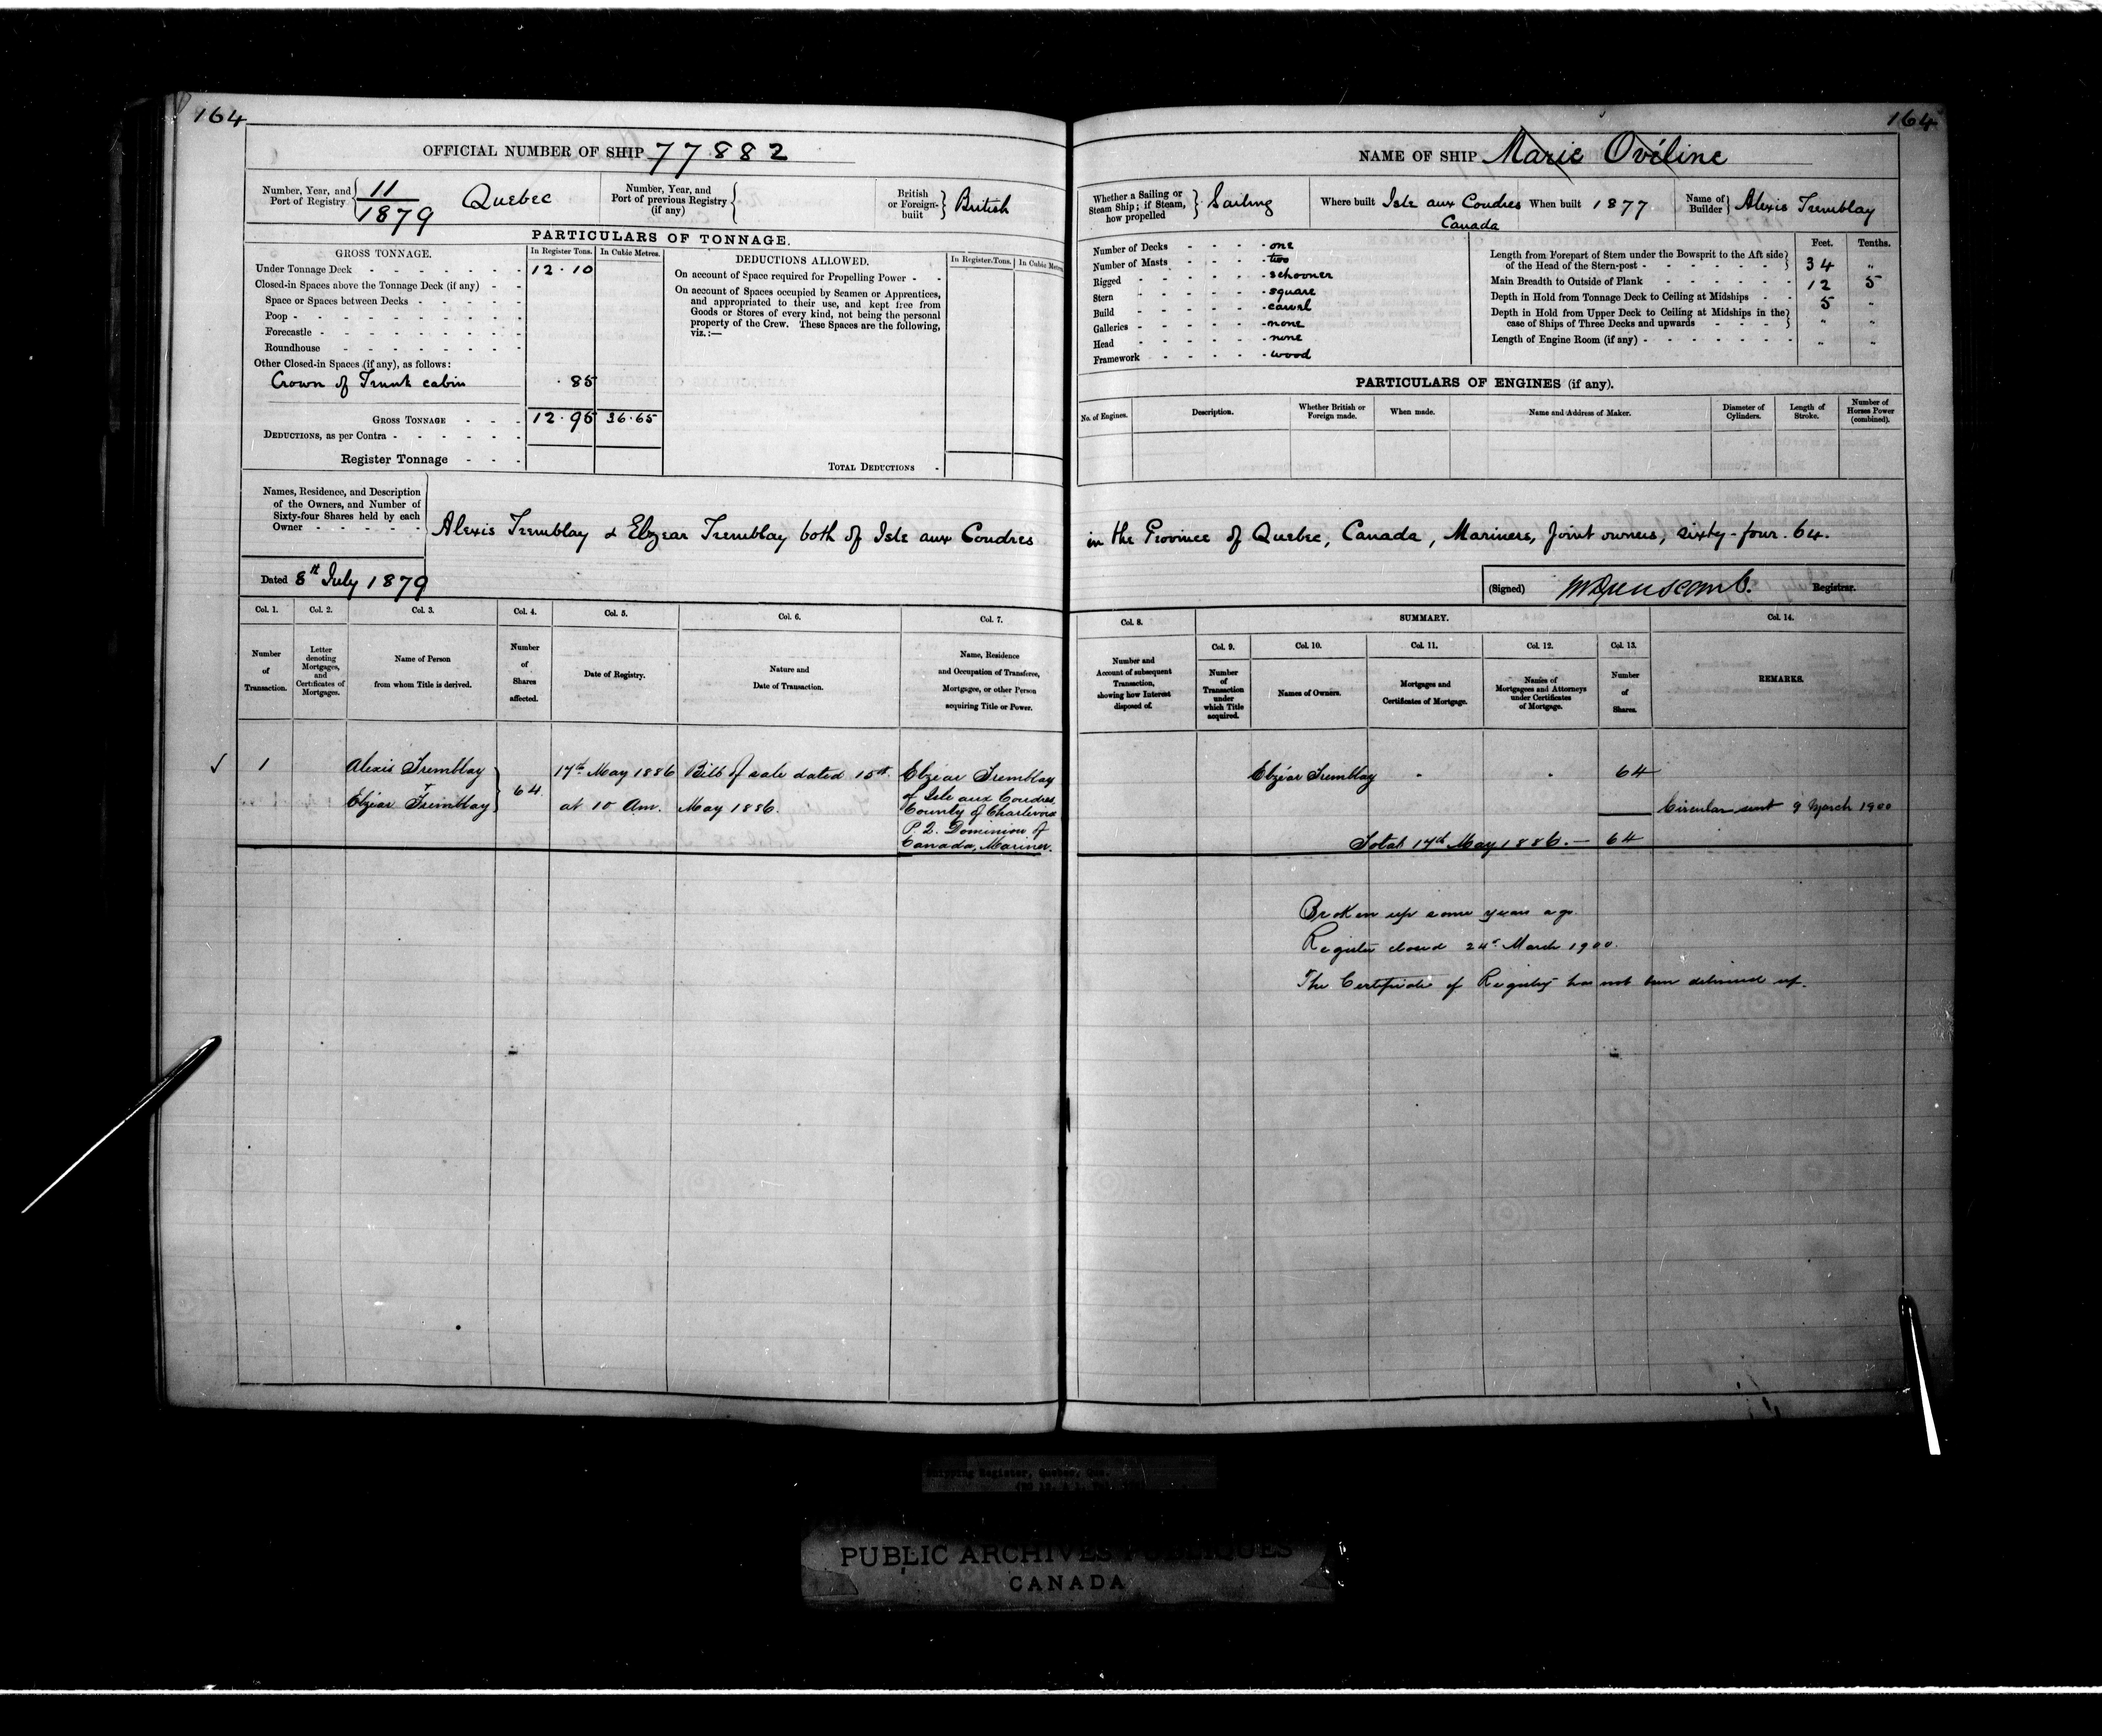 164
OFFICIAL NUMBER OF SHIP 77882
Number, Year, and Port of Registry 11/1879 Quebec
Number, Year, and Port of previous Registry (if any)
British or Foreign-built British
PARTICULARS OF TONNAGE.
GROSS TONNAGE. In Register Tons. In Cubic Metres.
Under Tonnage Deck - 12.10
Closed-in Spaces above the Tonnage Deck (if any) -
Space or Spaces between Decks -
Poop -
Forecastle -
Roundhouse -
Other Closed-in Spaces (if any), as follows:
Crown of Trunk cabin .85
GROSS TONNAGE - 12.95 36.65
DEDUCTIONS, as per Contra -
Register Tonnage -
DEDUCTIONS ALLOWED. In Register Tons. In Cubic Metres
On account of Space required for Propelling Power -
On account of Spaces occupied by Seamen or Apprentices,
and appropriated to their use, and kept free from
Goods or Stores of every kind, not being the personal
property of the Crew. These Spaces are the following,
viz.:—
TOTAL DEDUCTIONS -
164
NAME OF SHIP Marie Oveline
Whether a Sailing or Steam Ship; if Steam, how propelled Sailing
Where built Isle aux Coudres Canada
When built 1877
Name of Builder Alexis Tremblay
Number of Decks - one
Number of Masts - two
Rigged - schooner
Stern - square
Build - carvel
Galleries - none
Head - none
Framework - wood
Feet. Tenths.
Length from Forepart of Stem under the Bowsprit to the Aft side
of the Head of the Stern-post - 34 "
Main Breadth to Outside of Plank 12 5
Depth in Hold from Tonnage Deck to Ceiling at Midships - 5 "
Depth in Hold from Upper Deck to Ceiling at Midships in the
case of Ships of Three Decks and upwards - " "
Length of Engine Room (if any) - " "
PARTICULARS OF ENGINES (if any).
No. of Engines. Description. Whether British or Foreign made. When made. Name and Address of Maker. Diameter of Cylinders. Length of Stroke. Number of Horses Power (combined).
Names, Residence, and Description
of the Owners, and Number of
Sixty-four Shares held by each
Owner -
Alexis Tremblay & Elzear Tremblay both of Isle aux Coudres in the Province of Quebec, Canada, Mariners, Joint owners, sixty-four. 64.
Dated 8th July 1879
(Signed) Registrar.
Col. 1. Col. 2. Col. 3. Col. 4. Col. 5. Col. 6. Col. 7.
Number of Transaction.
Letter denoting Mortgages, and Certificates of Mortgages.
Name of Person from whom Title is derived.
Number of Shares affected.
Date of Registry.
Nature and Date of Transaction.
Name, Residence and Occupation of Transferee, Mortgagee, or other Person acquiring Title or Power.
Col. 8. SUMMARY. Col. 14.
Col. 9. Col. 10. Col. 11. Col. 12. Col. 13.
Number and Account of subsequent Transaction, showing how Interest disposed of.
Number of Transaction under which Title acquired.
Names of Owners.
Mortgages and Certificates of Mortgage.
Names of Mortgagees and Attorneys under Certificates of Mortgage.
Number of Shares.
REMARKS.
1 Alexis Tremblay
Elzéar Tremblay
64
17th May 1886
at 10 Am.
Bill of sale dated 15th
May 1886.
Elzéar Tremblay
of Isle aux Coudres
County of Charlevoix
P.Q. Dominion of
Canada, Mariner.
Elzéar Tremblay 64
Circular sent 9 March 1900
Total 17th May 1886.— 64
Broken up some years ago
Register closed 24th March 1900.
The Certificate of Registry has not been delivered up.
Shipping Register, Quebec, Que.
PUBLIC ARCHIVES PUBLIQUES
CANADA